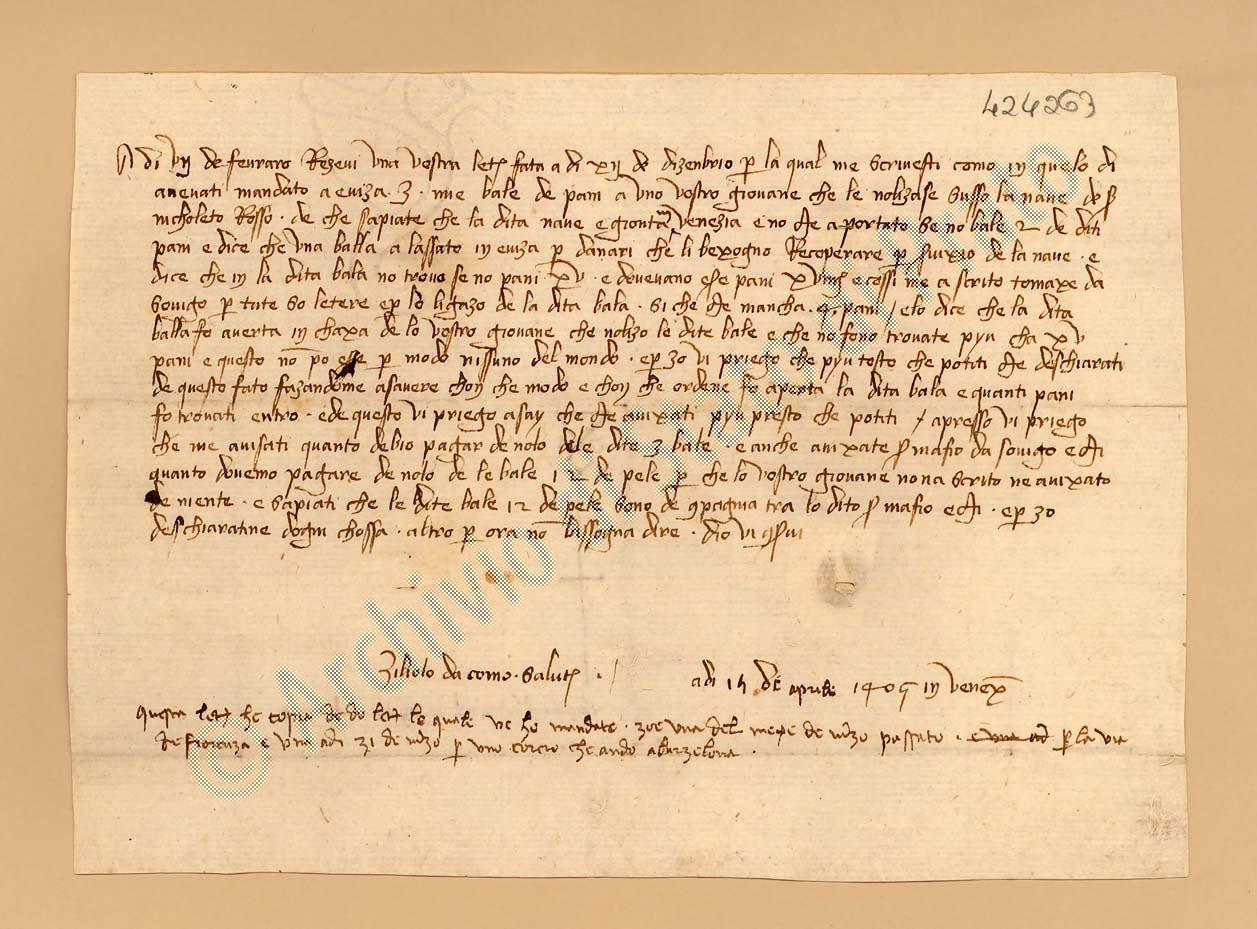 424263
A di VIJ de fevraro Rezevi una vostra letr fata a di XIJ de dizenbrio p la qual me scrivesti como in quelo di
avevati mandato a eviza 3 mie bale de pani a uno vostro giovane che le nolizase susso la nave de s
nicholeto Rosso · de che sapiate che la dita nave e gionta a venezia e no ne a portato se no bale 2 de diti
pani e dice che una balla a lassato in eviza p danari che li bexogno Recoperare p avixio de la nave · e
dice che in la dita bala no trovo se no pani XV · e dovevano ese pani e cossi me a scrito tomaxe da
sovigo p tute so letere e p lo ligazo de la dita bala · si che ne mancha · 4 · pani / elo dice che la dita
balla fo averta in chaxa de lo vostro giovane che nolizo le dite bale e che no fono trovate pyu cha XV
pani e questo non po esse p modo nissuno del mondo · e p zo vi priego che pyu tosto che potiti ne deschiarati
de questo fato fazandome asavere chon che modo e chon che ordene fo aperta la dita bala e quanti pani
fo trovati entro · e de questo vi priego asay che ne avixati pyu presto che potiti / apresso vi priego
che me avisati quanto debio pagar de nolo dele dite 3 bale · e anche avixate s mafio da sovigo e mi
quanto dovemo pagare de nolo de le bale 12 de pele p che lo vostro giovane non a scrito ne avixato
de niente · e sapiati che le dite bale 12 de pele sono de 9pagnia tra lo dito s mafio e mi · e p zo
deschiaratine dogni chossa · altro p ora non bissogna dire · dio vi
Ziliolo da como · salutr · /
adi 15 de aprile 1409 in venex
questa letr he copia de do letr le quale ve ho mandate · zoe una del mexe de mzo passato · e una ad p la via
de fiorenza e una adi 31 de mzo p uno coreio che ando a barzelona ·
© Archivio di Stato di Prato